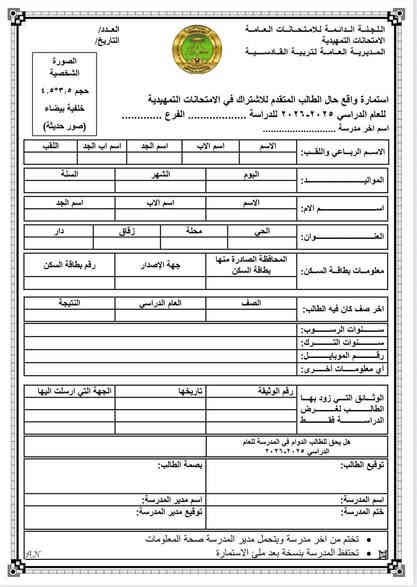 اللجنة الدائمة للامتحانات العامة
الامتحانات التمهيدية
المديرية العامة لتربية القادسية
العدد/
التاريخ/
الصورة
الشخصية
حجم ٣،٥*٤،٥
خلفية بيضاء
(صور حديثة)
استمارة واقع حال الطالب المتقدم للاشتراك في الامتحانات التمهيدية
للعام الدراسي ٢٠٢٥-٢٠٢٦ للدراسة .................... الفرع .............
اسم اخر مدرسة ........................
الاسم الرباعي واللقب: الاسم اسم الاب اسم الجد اسم اب الجد اللقب
المواليد: اليوم الشهر السنة
اسم الام: الاسم اسم الاب اسم الجد
العنوان: الحي محلة زقاق دار
معلومات بطاقة السكن: المحافظة الصادرة منها بطاقة السكن جهة الإصدار رقم بطاقة السكن
اخر صف كان فيه الطالب: الصف العام الدراسي النتيجة
سنوات الرسوب:
سنوات الترك:
رقم الموبايل:
أي معلومات أخرى:
الوثائق التي زود بها الطالب لغرض الدراسة فقط رقم الوثيقة تاريخها الجهة التي ارسلت اليها
هل يحق للطالب الدوام في المدرسة للعام
الدراسي ٢٠٢٥-٢٠٢٦
توقيع الطالب: بصمة الطالب:
اسم المدرسة: اسم مدير المدرسة:
ختم المدرسة: توقيع مدير المدرسة:
• تختم من اخر مدرسة ويتحمل مدير المدرسة صحة المعلومات
• تحتفظ المدرسة بنسخة بعد ملئ الاستمارة
A.N